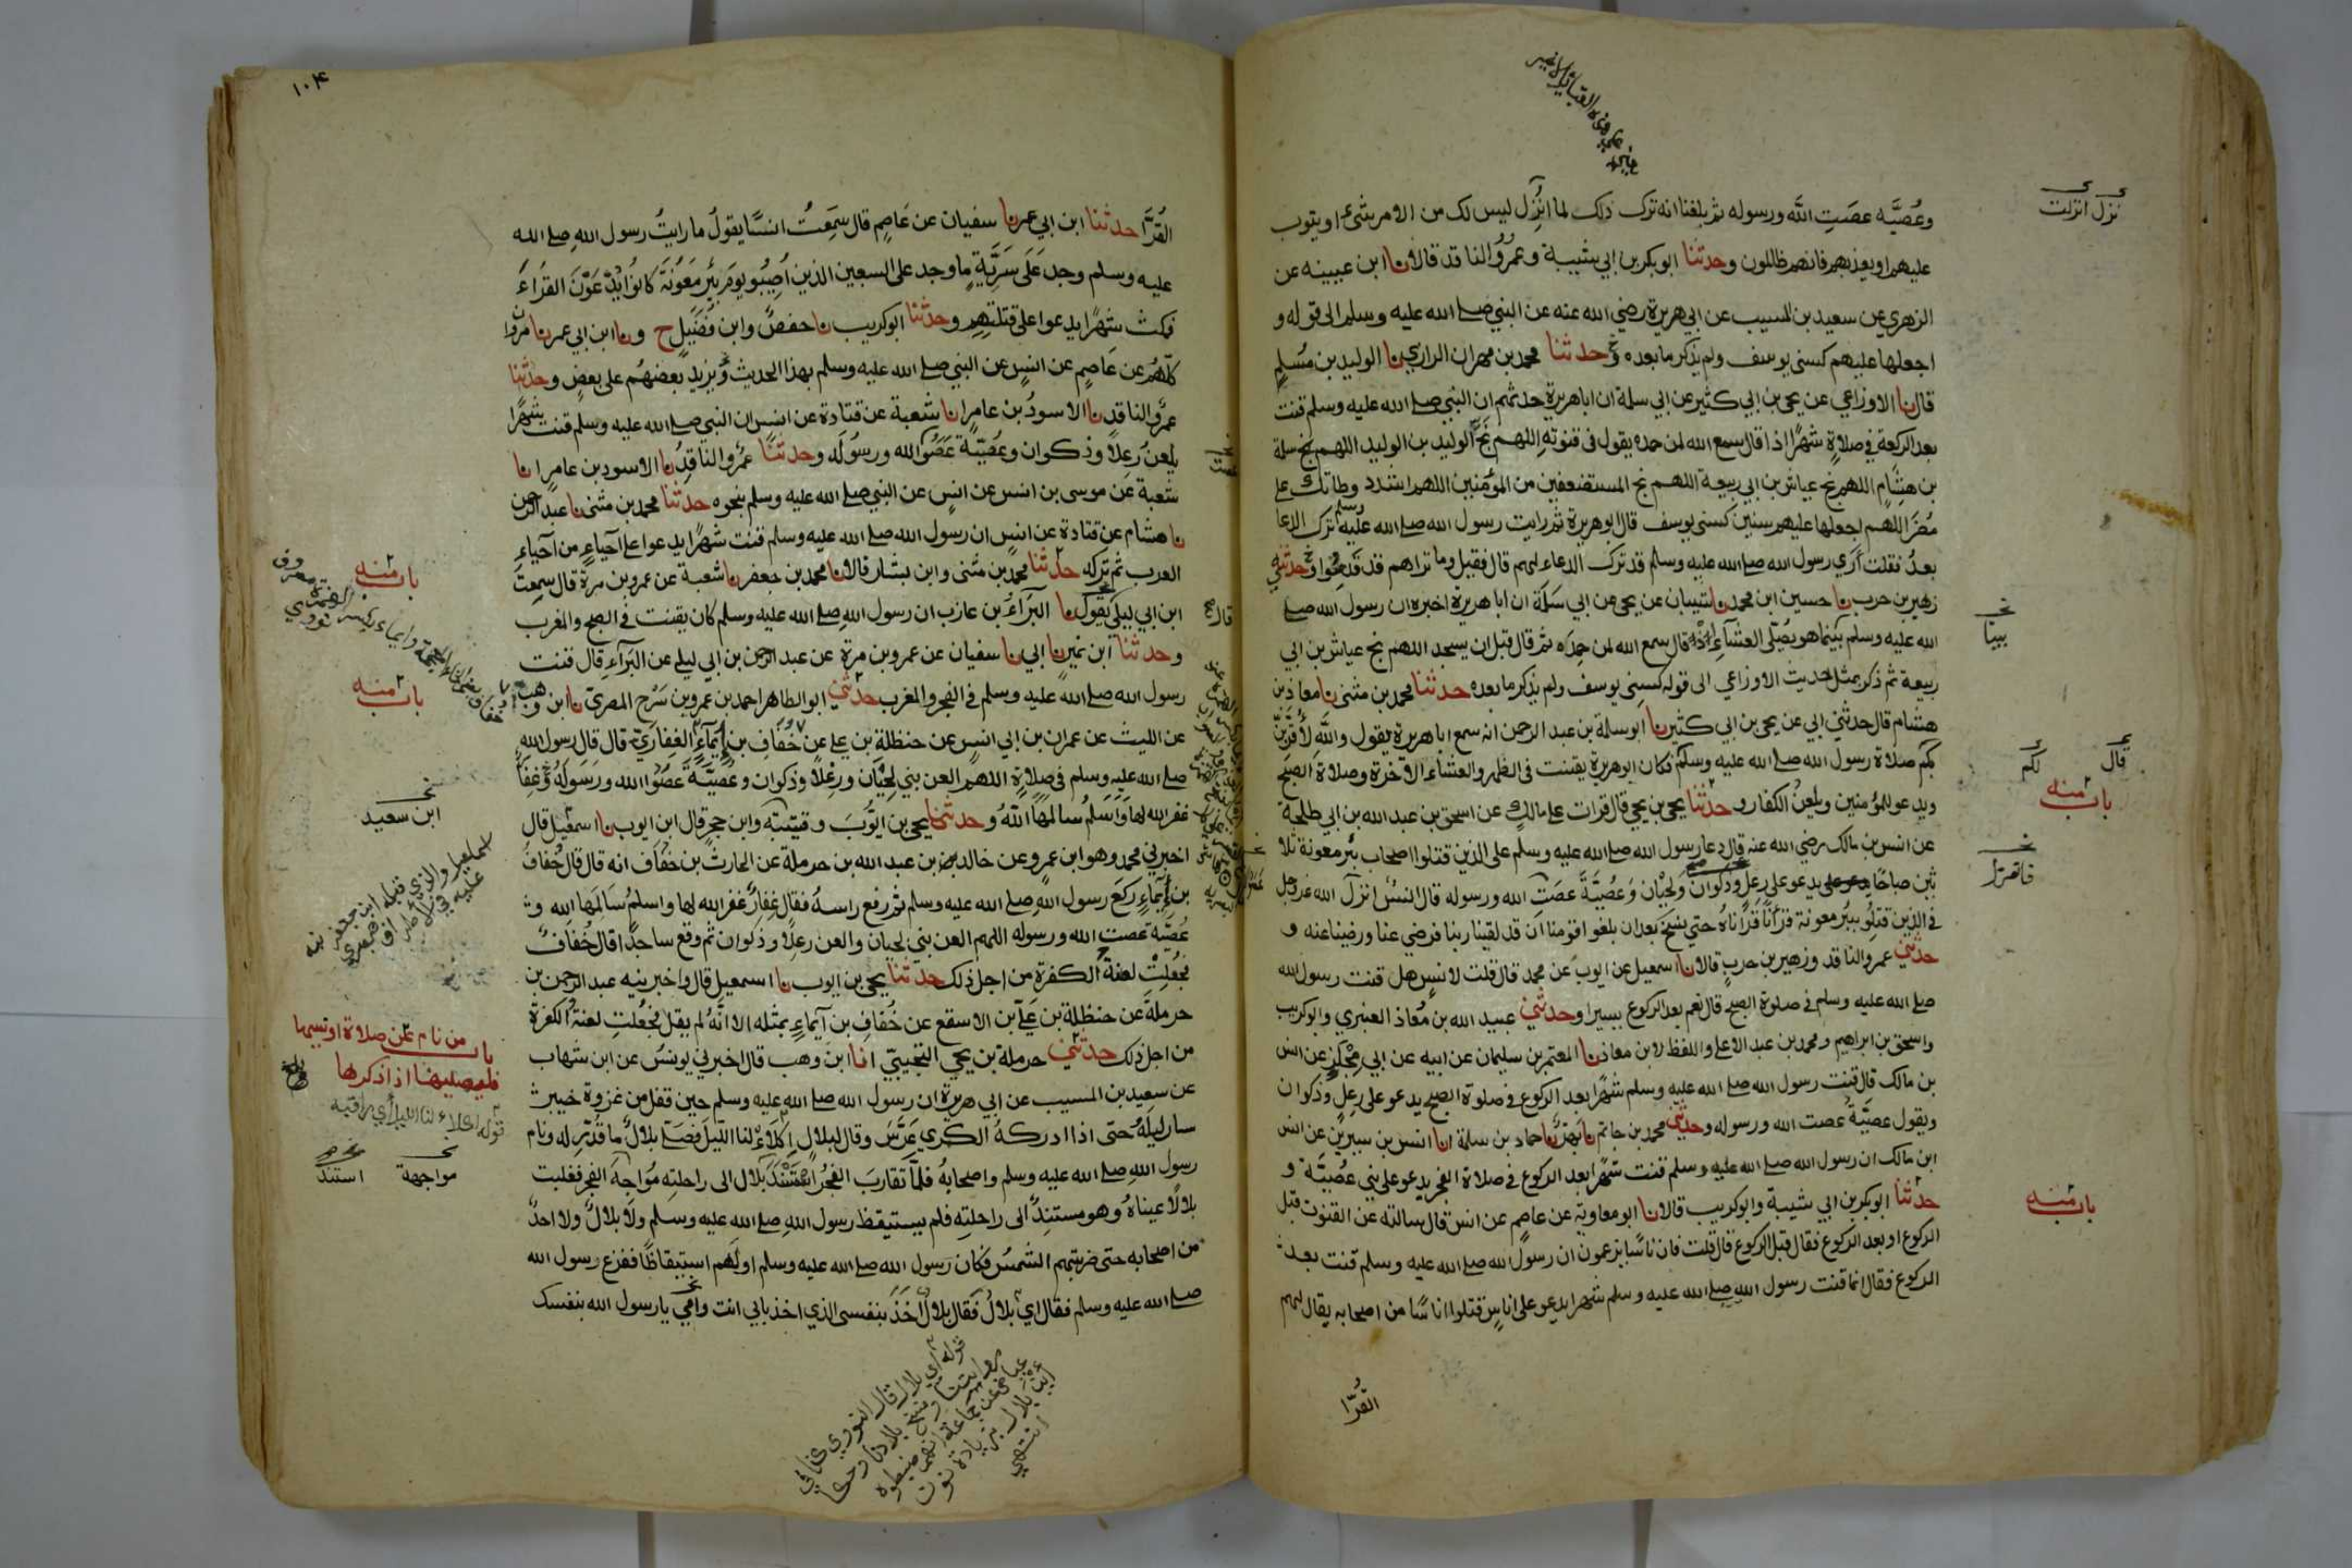 وعُصيَّه عصَتِ الله ورسوله ثم بلغنا انه ترك ذلك لما انزل ليس لك من الامر شيء او يتوب
عليهم او يعذبهم فانهم ظالمون وحدثنا ابوبكر بن ابي شيبة وعمرو الناقد قالا نا ابن عيينه عن
الزهري عن سعيد بن المسيب عن ابي هريرة رضي الله عنه عن النبي صلے الله عليه وسلم الى قوله و
اجعلها عليهم كسني يوسف ولم يذكر ما بعده وحدثنا محمد بن مهران الرازي نا الوليد بن مسلم
قال نا الاوزاعي عن يحي بن ابي كثير عن ابي سلمة ان اباهريرة حدثهم ان النبي صلے الله عليه وسلم قنت
بعد الركعة في صلاةٍ شهرًا اذا قال سمع الله لمن حمده يقول في قنوته اللهم نج الوليد بن الوليد اللهم نج سلمة
بن هشام اللهم نج عياش بن ابي ربيعة اللهم نج المستضعفين من المؤمنين اللهم اشدد وطاتك على
مضر اللهم اجعلها عليهم سنين كسني يوسف قال ابوهريرة ثم رايت رسول الله صلے الله عليه وسلم ترك الدعا
بعدُ فقلت أري رسول الله صلے الله عليه وسلم قد ترك الدعاء لهم قال فقيل وما تراهم قد قدموا وحدثني
زهير بن حرب نا حسين ابن محمد نا شيبان عن يحي عن ابي سلمة ان ابا هريرة اخبره ان رسول الله صلے
الله عليه وسلم بينما هو يصلي العشآء اذ قال سمع الله لمن حمده ثم قال قبل ان يسجد اللهم نج عياش بن ابي
ربيعة ثم ذكر بمثل حديث الاوزاعي الى قوله كسني يوسف ولم يذكر ما بعده حدثنا محمد بن مثنى نا معاذ بن
هشام قال حدثني ابي عن يحي بن ابي كثير نا ابوسلمة بن عبد الرحمن انه سمع اباهريرة يقول والله لأقربن
بكم صلاة رسول الله صلے الله عليه وسلم فكان ابوهريرة يقنت في الظهر والعشاء الآخرة وصلاة الصبح
ويدعو للمؤمنين ويلعن الكفار وحدثنا يحي بن يحي قال قرات على مالك عن اسحق بن عبد الله بن ابي طلحة
عن انس بن مالك رضي الله عنه قال دعا رسول الله صلے الله عليه وسلم على الذين قتلوا اصحاب بئر معونة ثلا
ثين صباحًا يدعو على رعل وذكوان ولحيان وعصية عصت الله ورسوله قال انس انزل الله عز وجل
في الذين قتلو ببئر معونة قرانا قراناه حتى نسخ بعد ان بلغوا قومنا ان قد لقينا ربنا فرضي عنا ورضينا عنه و
حدثني عمرو الناقد وزهير بن حرب قالا نا اسمعيل عن ايوب عن محمد قال قلت لانس هل قنت رسول الله
صلے الله عليه وسلم في صلوة الصبح قال نعم بعد الركوع يسيرا وحدثني عبيد الله بن معاذ العنبري وابوكريب
واسحق بن ابراهيم ومحمد بن عبد الاعلى واللفظ لابن معاذ نا المعتمر بن سليمان عن ابيه عن ابي مجلز عن انس
بن مالك قال قنت رسول الله صلے الله عليه وسلم شهرًا بعد الركوع في صلوة الصبح يدعو على رعل وذكوان
ويقول عصية عصت الله ورسوله وحدثني محمد بن حاتم نا بهز نا حماد بن سلمة انا انس بن سيرين عن انس
ابن مالك ان رسول الله صلے الله عليه وسلم قنت شهرًا بعد الركوع في صلاة الفجر يدعو على بني عصية و
حدثنا ابوبكر بن ابي شيبة وابوكريب قالا نا ابومعاوية عن عاصم عن انس قال سالته عن القنوت قبل
الركوع او بعد الركوع فقال قبل الركوع قال قلت فان ناسًا يزعمون ان رسول الله صلے الله عليه وسلم قنت بعد
الركوع فقال انما قنت رسول الله صلے الله عليه وسلم شهرا يدعو على اناس قتلوا اناسًا من اصحابه يقال لهم
القُرّا
نزل انزلت
بينا
قال لكم
باب منه
باب منه
١٠٤
القُرَّا حدثنا ابن ابي عمر نا سفيان عن عاصم قال سمعت انسًا يقول ما رايتُ رسول الله صلے الله
عليه وسلم وجد على سرية ما وجد على السبعين الذين اصيبو يوم بئر معونة كانوا يدعون القراء
فمكث شهرًا يدعوا على قتلتهم وحدثنا ابوكريب نا حفص وابن فضيل ح ونا ابن ابي عمر نا مروان
كلهم عن عاصم عن انس عن النبي صلے الله عليه وسلم بهذا الحديث ويزيد بعضهم على بعض وحدثنا
عمرو الناقد نا الاسود بن عامر انا شعبة عن قتادة عن انس ان النبي صلے الله عليه وسلم قنت شهرًا
يلعن رعلا وذكوان وعصية عصوا الله ورسوله وحدثنا عمرو الناقد نا الاسود بن عامر انا
شعبة عن موسى بن انس عن انس عن النبي صلے الله عليه وسلم بنحوه حدثنا محمد بن مثنى نا عبد الرحمن
نا هشام عن قتادة عن انس ان رسول الله صلے الله عليه وسلم قنت شهرًا يدعوا على احياء من احياء
العرب ثم تركه حدثنا محمد بن مثنى وابن بشار قالا نا محمد بن جعفر نا شعبة عن عمرو بن مرة قال سمعت
ابن ابي ليلى يقول نا البراء بن عازب ان رسول الله صلے الله عليه وسلم كان يقنت في الصبح والمغرب
وحدثنا ابن نمير نا ابي نا سفيان عن عمرو بن مرة عن عبد الرحمن بن ابي ليلے عن البرآء قال قنت
رسول الله صلے الله عليه وسلم في الفجر والمغرب حدثني ابو الطاهر احمد بن عمرو بن سرح المصري نا ابن وهب
عن الليث عن عمران بن ابي انس عن حنظلة بن علي عن خفاف بن ايمآء الغفاري قال قال رسول الله
صلے الله عليه وسلم في صلاة اللهم العن بني لحيان ورعلا وذكوان وعصية عصوا الله ورسوله وغفار
غفر الله لها واسلم سالمها الله وحدثنا يحي بن ايوب وقتيبة وابن حجر قال ابن ايوب نا اسمعيل قال
اخبرني محمد وهو ابن عمرو عن خالد بن عبد الله بن حرملة عن الحارث بن خفاف انه قال قال خفاف
بن ايماء ركع رسول الله صلے الله عليه وسلم ثم رفع راسه فقال غفار غفر الله لها واسلم سالمها الله و
عصية عصت الله ورسوله اللهم العن بني لحيان والعن رعلا وذكوان ثم وقع ساجدًا قال خفاف
فجعلت لعنة الكفرة من اجل ذلك حدثنا يحي بن ايوب نا اسمعيل قال واخبرنيه عبد الرحمن بن
حرملة عن حنظلة بن علي بن الاسقع عن خفاف بن ايماء بمثله الا انه لم يقل فجعلت لعنة الكفرة
من اجل ذلك حدثني حرملة بن يحي التجيبي انا ابن وهب قال اخبرني يونس عن ابن شهاب
عن سعيد بن المسيب عن ابي هريرة ان رسول الله صلے الله عليه وسلم حين قفل من غزوة خيبر
سار ليله حتى اذا ادركه الكري عرس وقال لبلال اكلأ لنا الليل فصلى بلال ما قدر له ونام
رسول الله صلے الله عليه وسلم واصحابه فلما تقارب الفجر استند بلال الى راحلته مواجه الفجر فغلبت
بلالا عيناه وهو مستند الى راحلته فلم يستيقظ رسول الله صلے الله عليه وسلم ولا بلال ولا احد
من اصحابه حتى ضربتهم الشمس فكان رسول الله صلے الله عليه وسلم اولهم استيقاظًا ففزع رسول الله
صلے الله عليه وسلم فقال اي بلال فقال بلال اخذ بنفسي الذي اخذ بابي انت وامي يا رسول الله بنفسك
باب منه
باب منه
ابن سعيد
باب من نام عن صلاة او نسيها
فليصليها اذا ذكرها
مواجهة استند
قوله اي بلال قال النووي